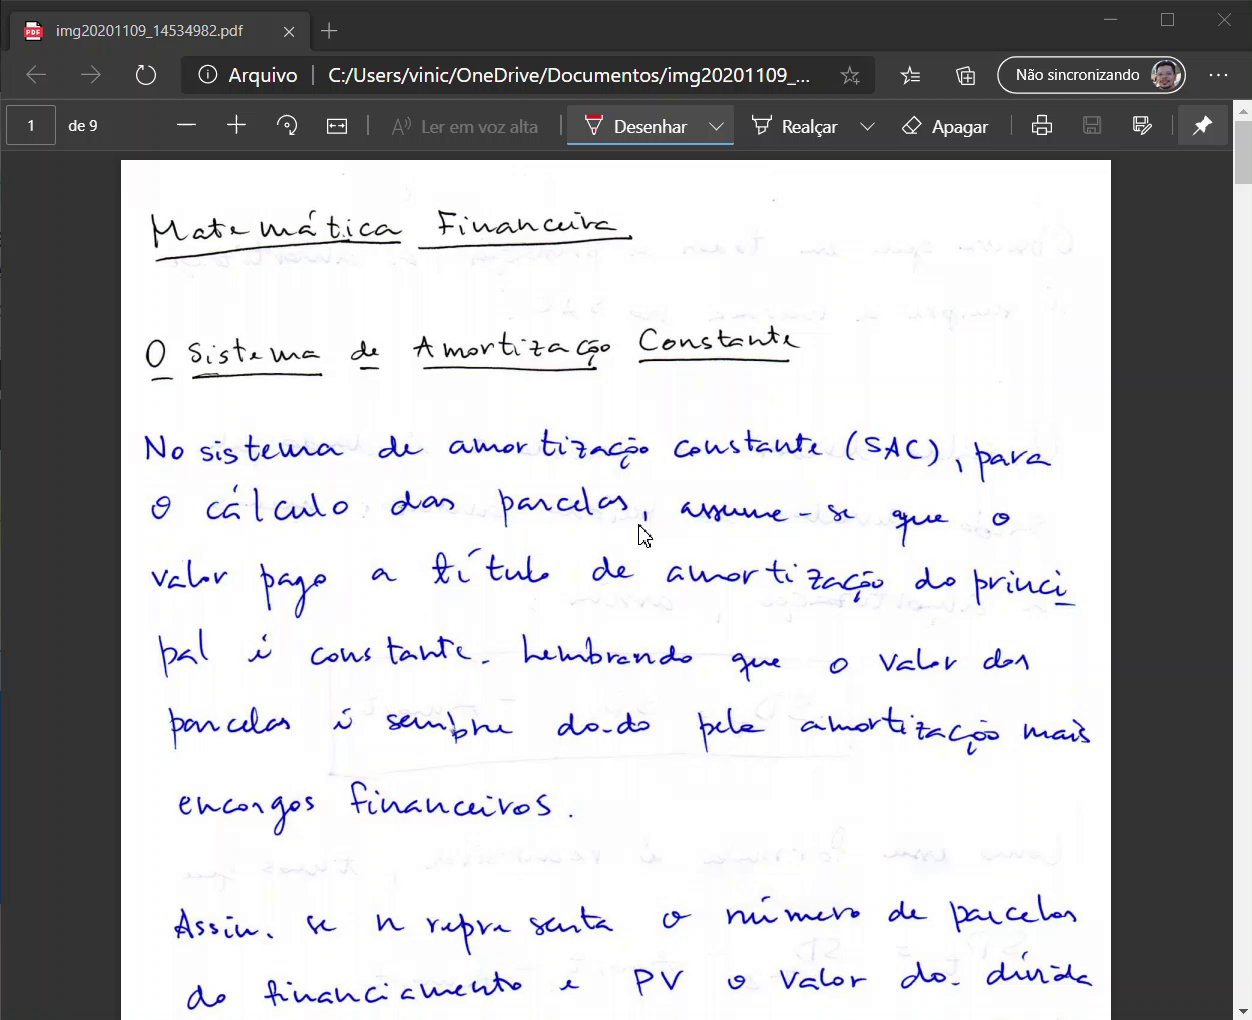 img20201109_14534982.pdf
Arquivo C:/Users/vinic/OneDrive/Documentos/img20201109_... Não sincronizando
1 de 9 Ler em voz alta Desenhar Realçar Apagar
Matemática Financeira
O Sistema de Amortização Constante
No sistema de amortização constante (SAC), para
o cálculo das parcelas, assume-se que o
valor pago a título de amortização do princi
pal é constante. Lembrando que o valor das
parcelas é sempre dado pela amortização mais
encargos financeiros.
Assim, se n representa o número de parcelas
do financiamento e PV o valor da dívida